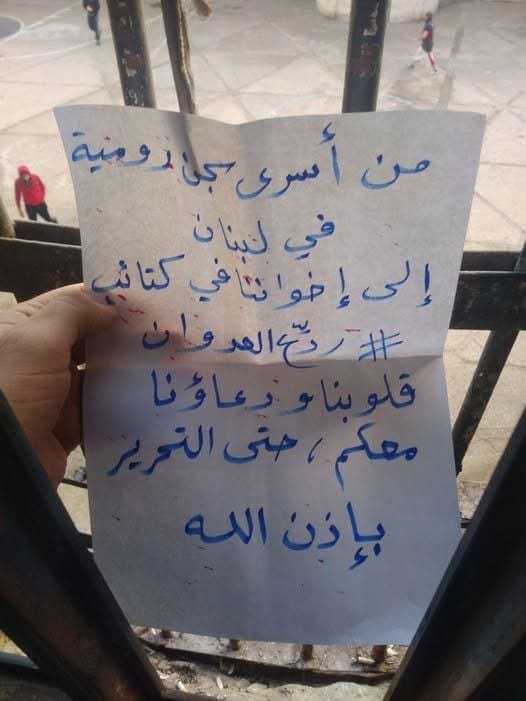 من أسرى سجن رومية
في لبنان
إلى إخواننا في كتائب
# ردّع العدوان
قلوبنا ودعاؤنا
معكم، حتى التحرير
بإذن الله